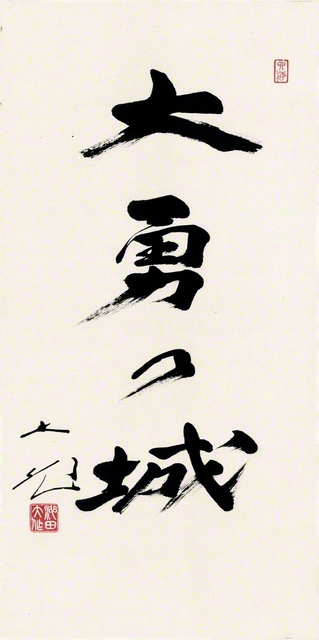 大勇の城
大作
池田大作